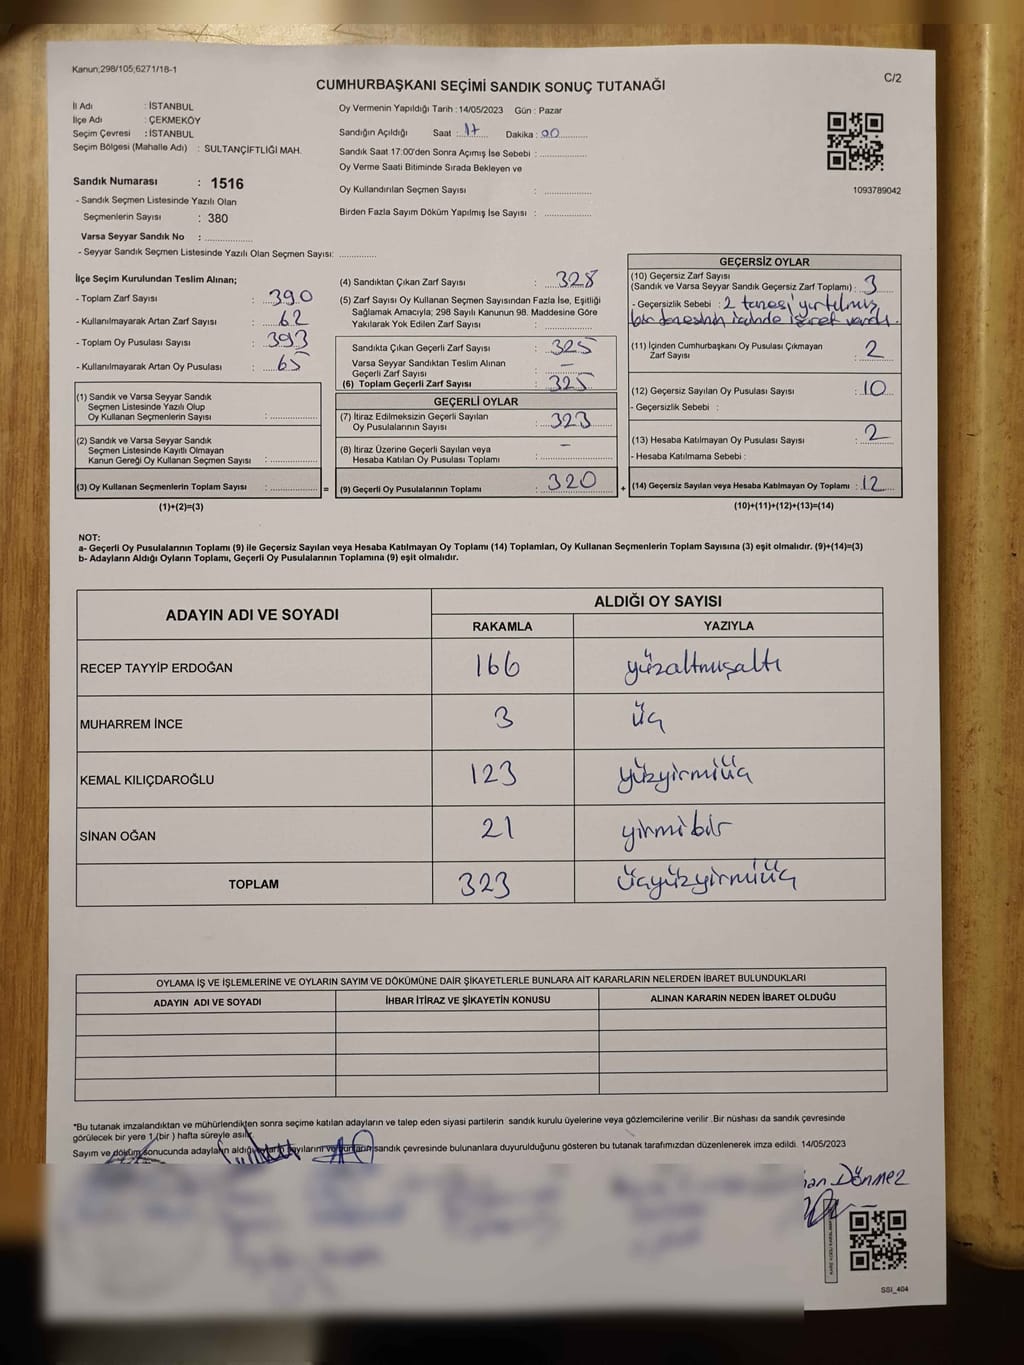 Kanun;298/105;6271/18-1
C/2
CUMHURBAŞKANI SEÇİMİ SANDIK SONUÇ TUTANAĞI
İl Adı : İSTANBUL
İlçe Adı : ÇEKMEKÖY
Seçim Çevresi : İSTANBUL
Seçim Bölgesi (Mahalle Adı) : SULTANÇİFTLİĞİ MAH.
Sandık Numarası : 1516
- Sandık Seçmen Listesinde Yazılı Olan
Seçmenlerin Sayısı : 380
Varsa Seyyar Sandık No : ................
- Seyyar Sandık Seçmen Listesinde Yazılı Olan Seçmen Sayısı: ..............
Oy Vermenin Yapıldığı Tarih : 14/05/2023 Gün : Pazar
Sandığın Açıldığı Saat : 17 Dakika : 00
Sandık Saat 17:00'den Sonra Açımış İse Sebebi : ................
Oy Verme Saati Bitiminde Sırada Bekleyen ve
Oy Kullandırılan Seçmen Sayısı : ................
Birden Fazla Sayım Döküm Yapılmış İse Sayısı : ................
1093789042
İlçe Seçim Kurulundan Teslim Alınan;
- Toplam Zarf Sayısı : 390
- Kullanılmayarak Artan Zarf Sayısı : 62
- Toplam Oy Pusulası Sayısı : 393
- Kullanılmayarak Artan Oy Pusulası : 65
(1) Sandık ve Varsa Seyyar Sandık
Seçmen Listesinde Yazılı Olup
Oy Kullanan Seçmenlerin Sayısı : ................
(2) Sandık ve Varsa Seyyar Sandık
Seçmen Listesinde Kayıtlı Olmayan
Kanun Gereği Oy Kullanan Seçmen Sayısı : ................
(3) Oy Kullanan Seçmenlerin Toplam Sayısı : ................ =
(1)+(2)=(3)
(4) Sandıktan Çıkan Zarf Sayısı : 328
(5) Zarf Sayısı Oy Kullanan Seçmen Sayısından Fazla İse, Eşitliği
Sağlamak Amacıyla; 298 Sayılı Kanunun 98. Maddesine Göre
Yakılarak Yok Edilen Zarf Sayısı : ................
Sandıkta Çıkan Geçerli Zarf Sayısı : 325
Varsa Seyyar Sandıktan Teslim Alınan
Geçerli Zarf Sayısı : –
(6) Toplam Geçerli Zarf Sayısı : 325
GEÇERLİ OYLAR
(7) İtiraz Edilmeksizin Geçerli Sayılan
Oy Pusulalarının Sayısı : 323
(8) İtiraz Üzerine Geçerli Sayılan veya
Hesaba Katılan Oy Pusulası Toplamı : –
(9) Geçerli Oy Pusulalarının Toplamı : 320 +
GEÇERSİZ OYLAR
(10) Geçersiz Zarf Sayısı
(Sandık ve Varsa Seyyar Sandık Geçersiz Zarf Toplamı) : 3
- Geçersizlik Sebebi : 2 tanesi yırtılmış
bir tanesinin içinde işaret vardı.
(11) İçinden Cumhurbaşkanı Oy Pusulası Çıkmayan
Zarf Sayısı : 2
(12) Geçersiz Sayılan Oy Pusulası Sayısı : 10
- Geçersizlik Sebebi :
(13) Hesaba Katılmayan Oy Pusulası Sayısı : 2
- Hesaba Katılmama Sebebi :
(14) Geçersiz Sayılan veya Hesaba Katılmayan Oy Toplamı : 12
(10)+(11)+(12)+(13)=(14)
NOT:
a- Geçerli Oy Pusulalarının Toplamı (9) ile Geçersiz Sayılan veya Hesaba Katılmayan Oy Toplamı (14) Toplamları, Oy Kullanan Seçmenlerin Toplam Sayısına (3) eşit olmalıdır. (9)+(14)=(3)
b- Adayların Aldığı Oyların Toplamı, Geçerli Oy Pusulalarının Toplamına (9) eşit olmalıdır.
ADAYIN ADI VE SOYADI ALDIĞI OY SAYISI
RAKAMLA YAZIYLA
RECEP TAYYİP ERDOĞAN 166 yüzaltmışaltı
MUHARREM İNCE 3 üç
KEMAL KILIÇDAROĞLU 123 yüzyirmiüç
SİNAN OĞAN 21 yirmibir
TOPLAM 323 üçyüzyirmiüç
OYLAMA İŞ VE İŞLEMLERİNE VE OYLARIN SAYIM VE DÖKÜMÜNE DAİR ŞİKAYETLERLE BUNLARA AİT KARARLARIN NELERDEN İBARET BULUNDUKLARI
ADAYIN ADI VE SOYADI İHBAR İTİRAZ VE ŞİKAYETİN KONUSU ALINAN KARARIN NEDEN İBARET OLDUĞU
*Bu tutanak imzalandıktan ve mühürlendikten sonra seçime katılan adayların ve talep eden siyasi partilerin sandık kurulu üyelerine veya gözlemcilerine verilir. Bir nüshası da sandık çevresinde
görülecek bir yere 1 (bir) hafta süreyle asılır.
Sayım ve döküm sonucunda adayların aldığı oyların sayılarını ve bunların sandık çevresinde bulunanlara duyurulduğunu gösteren bu tutanak tarafımızdan düzenlenerek imza edildi. 14/05/2023
Dönmez
SSI_404